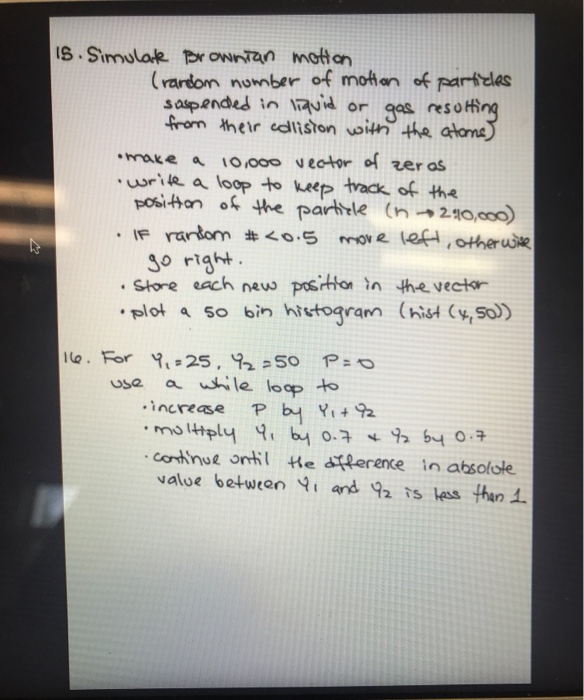 15. Simulate Brownian motion
(random number of motion of particles
suspended in liquid or gas resulting
from their collision with the atoms)
• make a 10,000 vector of zeros
• write a loop to keep track of the
position of the particle (n → 2:10,000)
• IF random # <0.5 move left, otherwise
go right.
• Store each new position in the vector
• plot a 50 bin histogram (hist (x, 50))
16. For Y₁ = 25, Y₂ = 50 P = 0
use a while loop to
• increase P by Y₁ + Y₂
• multiply Y₁ by 0.7 & Y₂ by 0.7
• continue until the difference in absolute
value between Y₁ and Y₂ is less than 1